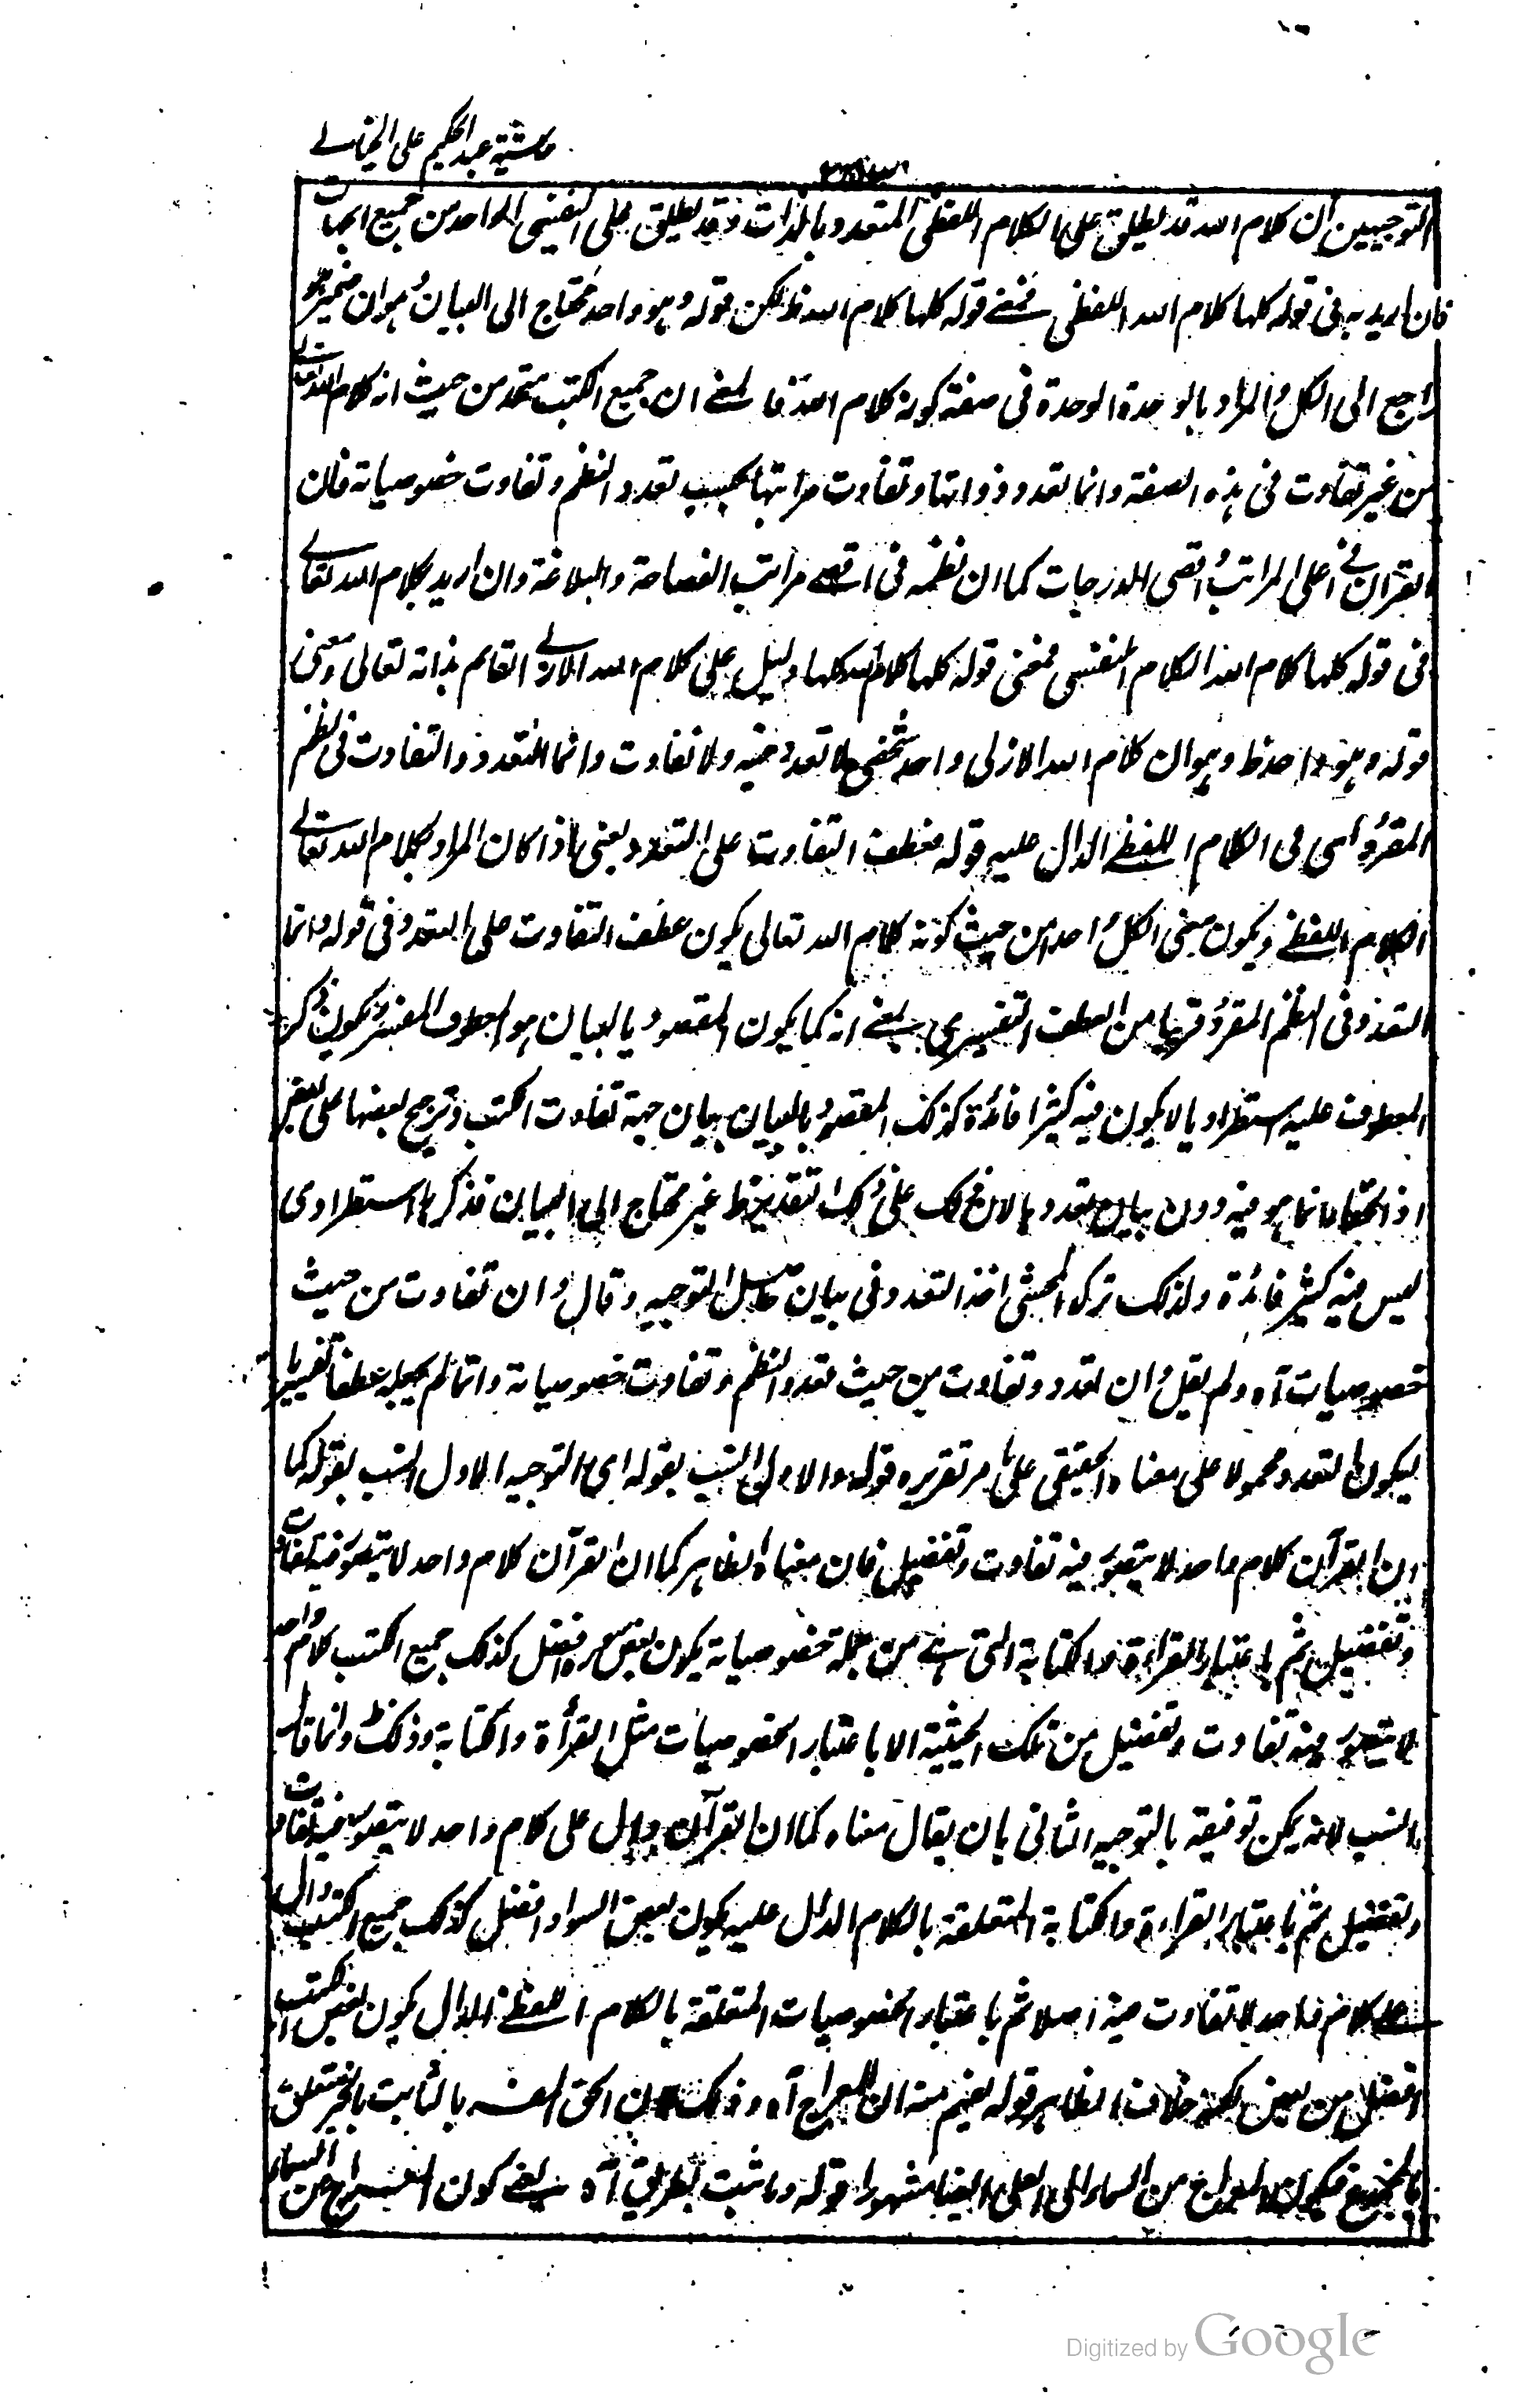 حاشية عبد الحكيم على الخيالي
التوجيهين ان كلام الله قد يطلق على الكلام اللفظي المتعدد بالذات وقد يطلق على النفسي الواحد من جميع الجهات
فان اريد به في قوله كلها كلام الله اللفظي فمعنى قوله كلها كلام الله ظ لكن قوله وهو واحد محتاج الى البيان وهو ان ضمير هو
راجع الى الكل والمراد بالوحدة الوحدة في صفة كونه كلام الله فالمعنى ان جميع الكتب متحد من حيث انه كلام الله تعالى
من غير تفاوت في هذه الصفة وانما تعدد ذواتها وتفاوت مراتبها بحسب تعدد النظم وتفاوت خصوصياته فان
القرآن في اعلى المراتب واقصى الدرجات كما ان نظمه في اقصى مراتب الفصاحة والبلاغة وان اريد بكلام الله تعالى
في قوله كلها كلام الله الكلام النفسي فمعنى قوله كلها كلام الله كلها دليل على كلام الله الازلي القايم بذاته تعالى ومعنى
قوله وهو واحد ظ وهو ان كلام الله الازلي واحد شخصي لا تعدد فيه ولا تفاوت وانما التعدد والتفاوت في النظم
المقرؤ اى فى الكلام اللفظي الدال عليه قوله فعطف التفاوت على التعدد يعني اذا كان المراد بكلام الله تعالى
الكلام اللفظي ويكون معنى الكل واحد من حيث كونه كلام الله تعالى يكون عطف التفاوت على التعدد في قوله وانما
التعدد في النظم المقرؤ قريبا من العطف التفسيري يعني انه كما يكون المقصود بالبيان هو المعطوف المفسر ويكون ذكر
المعطوف عليه استطراديا لا يكون فيه كثير فائدة كذلك المقصود بالبيان بيان جهة تفاوت الكتب وترجيح بعضها على بعض
اذ الخفاء انما هو فيه دون بيان تعددها لان ذلك على ذلك التقدير ظ غير محتاج الى البيان فذكرها استطرادى
ليس فيه كثير فائدة ولذلك ترك المحشى اخذ التعدد في بيان حاصل التوجيه وقال وان تفاوت من حيث
خصوصيات آه ولم يقل وان تعدد وتفاوت من حيث تعدد النظم وتفاوت خصوصياته وانما لم يجعله عطفا تفسيريا
ليكون التعدد محمولا على معناه الحقيقي على ما مر تقريره قوله والاول انسب بقوله اى التوجيه الاول انسب بقوله كما
ان القرآن كلام واحد لا يتصور فيه تفاوت وتفضيل فان معناه الظاهر كما ان القرآن كلام واحد لا يتصور فيه تفاوت
وتفضيل ثم باعتبار القراءة والكتابة التي هي من جملة خصوصياته يكون بعض سوره افضل كذلك جميع الكتب كلام واحد
لا يتصور فيه تفاوت وتفضيل من تلك الحيثية الا باعتبار الخصوصيات مثل القرأة والكتابة وذلك ظ وانما قال
انسب لانه يمكن توفيقه بالتوجيه الثاني بان يقال معناه كما ان القرآن دال على كلام واحد لا يتصور فيه تفاوت
وتفضيل ثم باعتبار القراءة والكتابة المتعلقة بالكلام الدال عليه يكون بعض السور افضل كذلك جميع الكتب دال
على كلام واحد لا تفاوت فيه اصلا ثم باعتبار الخصوصيات المتعلقة بالكلام اللفظي الدال يكون بعض الكتب
افضل من بعض لكنه خلاف الظاهر قوله يفهم منه ان المعراج آه وذلك لان الحق المفسر بالثابت بالخبر متعلق
بالجميع فيكون المعراج من السماء الى العلى ايضا مشهورا قوله وما ثبت بطريق آه يعني كون المعراج من السماء
Digitized by Google